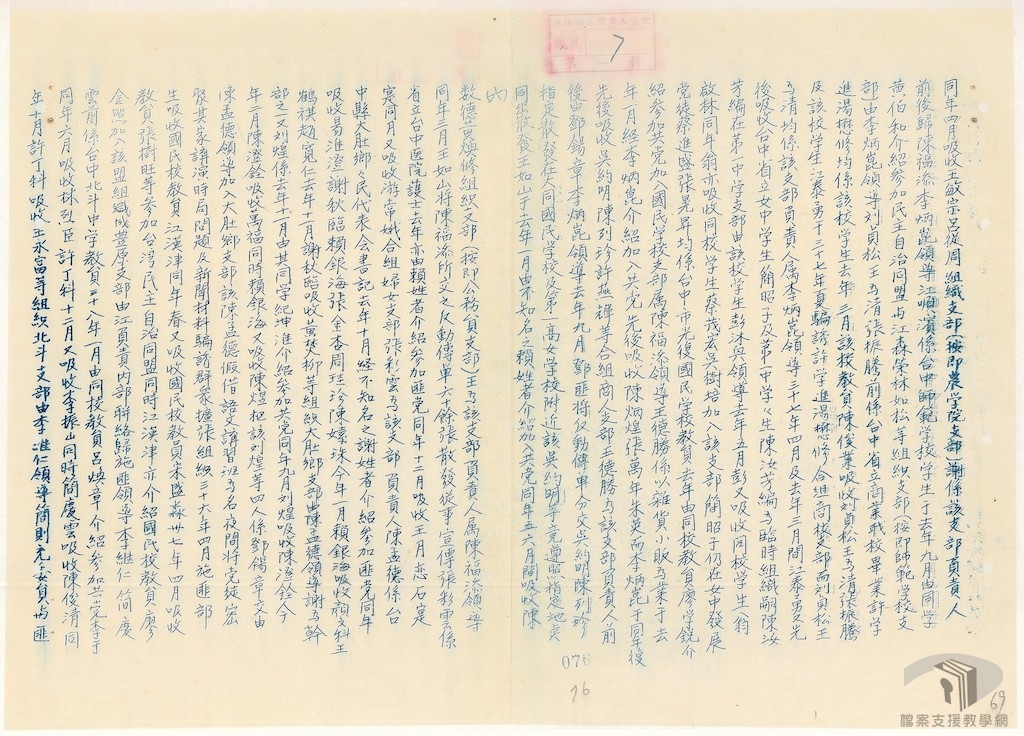 同年四月吸收王敏宗呂從周組織支部(按即農學院支部)謝係該支部負責人
前後歸陳福添李炳崑領導江順濱係台中師範學校學生于去年九月由同學
黃伯和介紹參加民主自治同盟与江森榮林如松等組織支部(按即師範學校支
部)由李炳崑領導刘貞松王為清張振騰前係台中省立商業職校畢業許學
進湯懋修均係該校學生去年三月該校教員陳俊業吸收刘貞松王為清張振騰
及該校學生江泰勇十三十七年夏騙誘許學進湯懋修合組商校支部而刘貞松王
為清均係該支部負責人屬李炳崑領導三十七年四月及去年三月間江泰勇又先
後吸收台中省立女中學生簡昭子及第一中學學生陳汝芳編為臨時組嗣陳汝
芳編在第一中學支部由該校學生彭沐興領導去年五月彭又吸收同校學生翁
啟林同年翁亦吸收同校學生蔡茂宏吳樹培加入該支部簡昭子仍在女中發展
党徒蔡進盛張晃昇均係台中市光復國民學校教員去年由同校教員廖學銳介
紹參加共党加入國民學校支部属陳福添領導王德勝係以雜貨小販為業于去
年一月經李炳崑介紹加入共党先後吸收陳炳煌張萬年朱英而李炳崑于同年復
先後吸收吳約明陳列珍許燕樺等合組商人支部王德勝為該支部負責人前
後由鄧錫章李炳崑領導去年九月鄧匪將反動傳单分交吳約明陳列珍
指定散發在人同國民學校及第一高女學校附近該吳約明等竟遵照指定地点
同年散發王如山于去年一月由不知名之賴姓者介紹加入共党同年五六月間吸收陳
076
76
數德呂煥修組織支部(按即公務員支部)王為該支部負責人屬陳福添領導
同年三月王如山將陳福添所交之反動傳单六十餘張散發從事宣傳張彩雲係
省立台中医院護士去年亦由賴姓者介紹參加匪党同年十二月吸收王月恋石寔
寔同月又吸收游常娥合組婦女支部張彩雲為該支部負責人陳孟德係台
中縣大肚鄉鄉民代表会書記去年十月經不知名之謝姓者介紹參加匪党同年
吸收易淮澄謝秋臨賴銀海張金杏周珪珍陳嫊洙今年一月賴銀海吸收賴文科王
鶴祺趙寬仁去年十一月謝秋臨吸收黃焚柳等組織大肚鄉支部由陳孟德領導謝為幹
部之一又刘煌係去年十一月由其同學紀坤淮介紹參加共党同年九月刘煌吸收陳澄銓今
年二月陳澄銓吸收萬福同時賴銀海又吸收陳煌杞該刘煌等四人係鄧錫章交由
陳孟德領導加入大肚鄉支部該陳孟德假借語文講習班為名夜間將党徒密
聚其家講演時局問題及新聞材料騙誘群眾擴張組織三十六年四月施匪部
生吸收國民校教員江漢津同年春又吸收國民校教員朱盛淼卅七年四月吸收
教員張樹旺等參加台湾民主自治同盟同時江漢津亦介紹國民校教員廖
金照加入該盟組織成豊原支部由江負責內部聯絡歸施匪領導李繼仁簡慶
雲前係台中北斗中學教員三十八年一月由同校教員呂煥章介紹參加共党李于
同年六月吸收林烈臣許丁科十二月又吸收李振山同時簡慶雲吸收陳俊清同
年十月許丁科吸收王永富等組織北斗支部由李進仁領導簡則充書負責与匪
7
69
檔案支援教學網